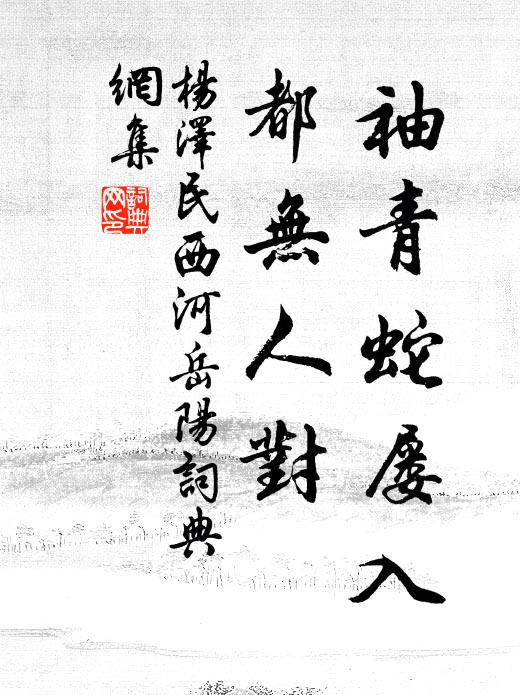 袖青蛇屡入
都無人對
楊澤民西河岳陽詞典
網集
詞典
网印